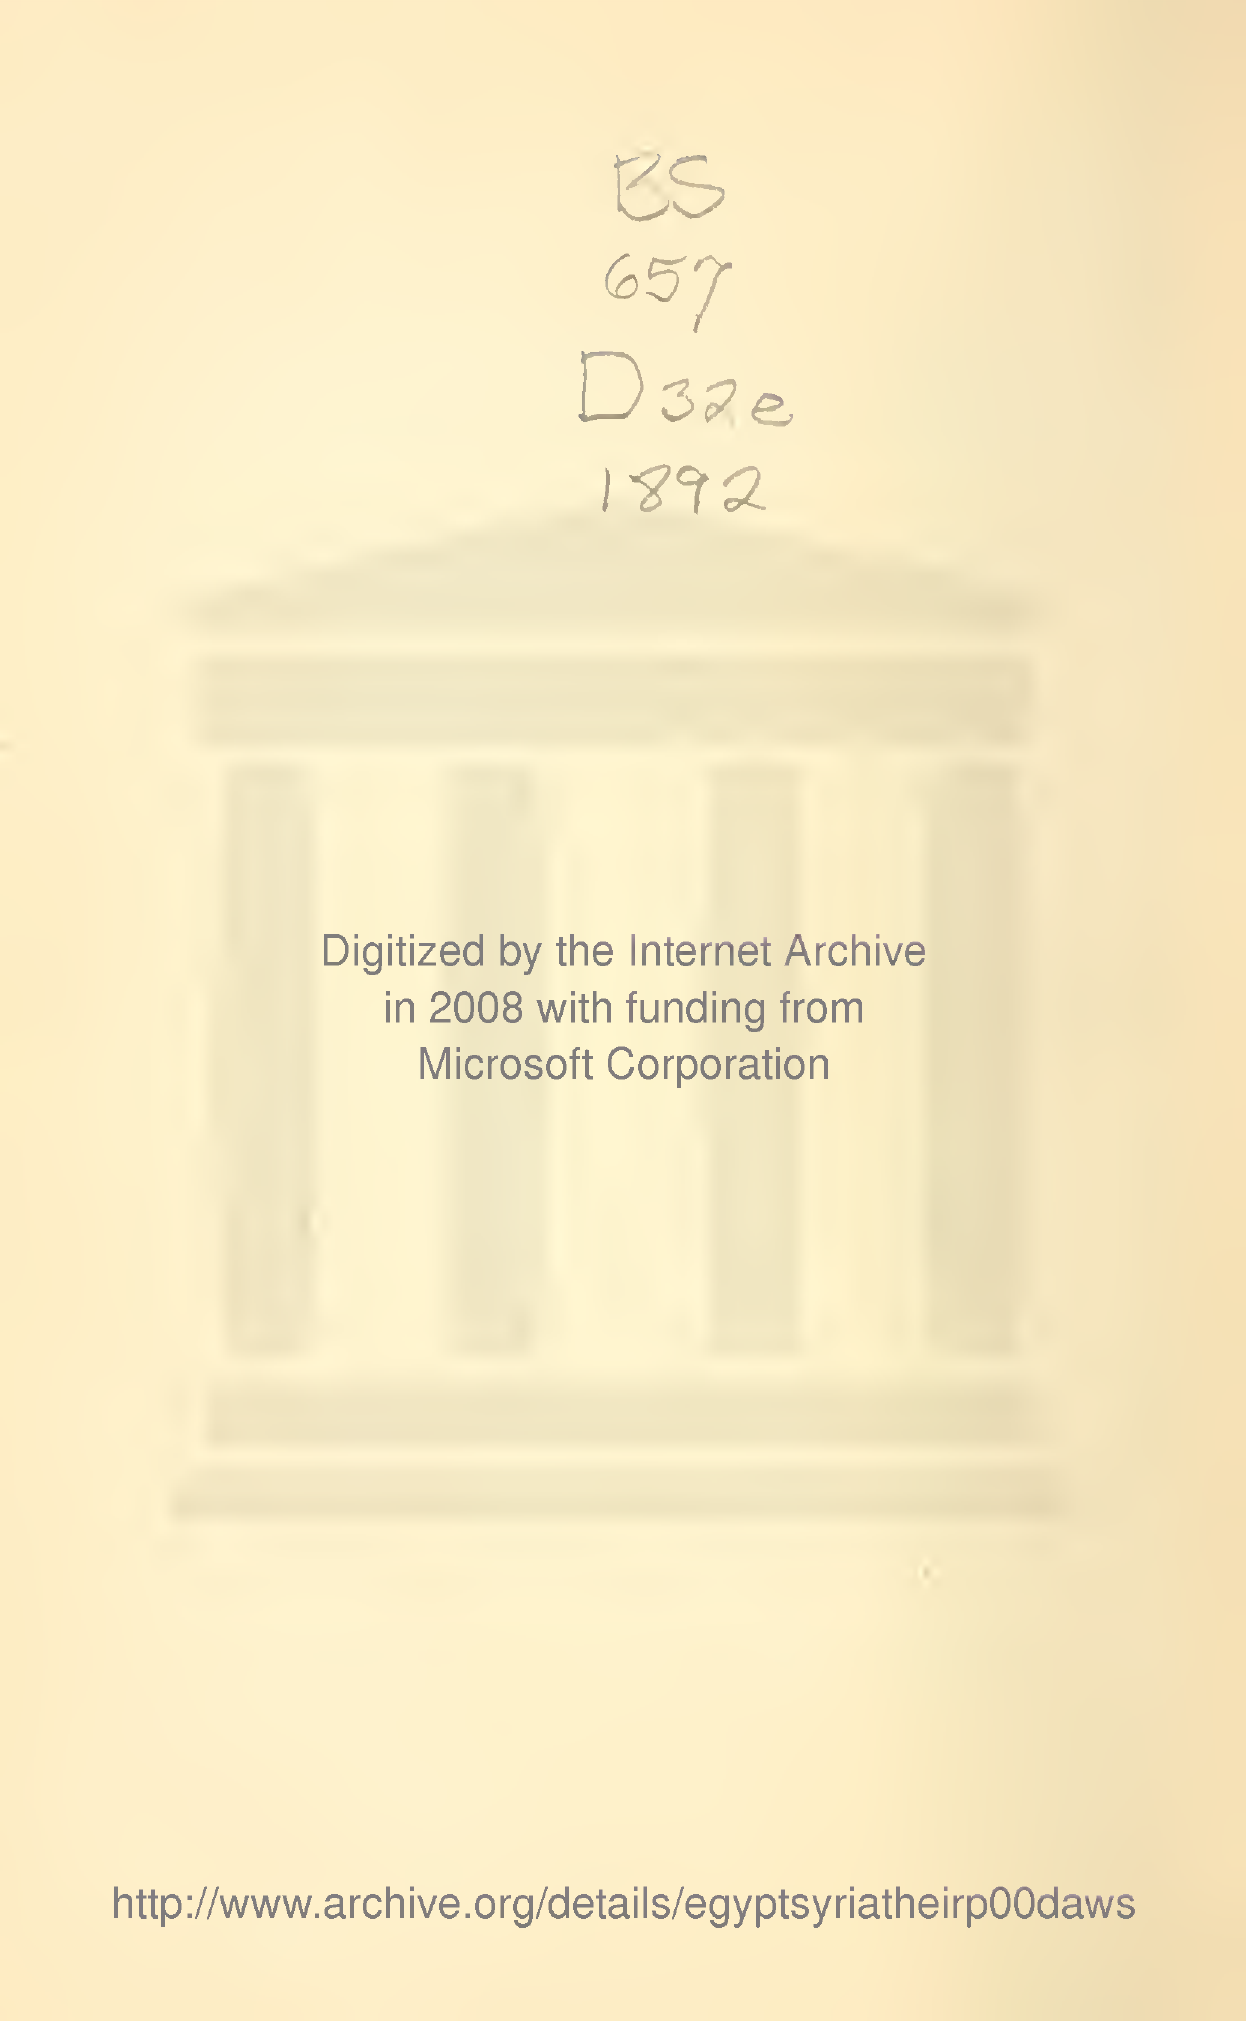 BS
657
D32e
1892
Digitized by the Internet Archive
in 2008 with funding from
Microsoft Corporation
http://www.archive.org/details/egyptsyriatheirp00daws